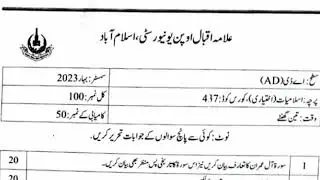 علامہ اقبال اوپن یونیورسٹی، اسلام آباد
سطح: اے ڈی (AD) سمسٹر: بہار 2023
پرچہ: اسلامیات (اختیاری)، کورس کوڈ: 437 کل نمبر: 100
وقت: تین گھنٹے کامیابی کے نمبر: 50
نوٹ: کوئی سے پانچ سوالوں کے جوابات تحریر کریں۔
1 سورۃ آل عمران کا تعارف بیان کریں نیز اس سورۃ کا تاریخی پس منظر بھی بیان کریں۔ 20
20